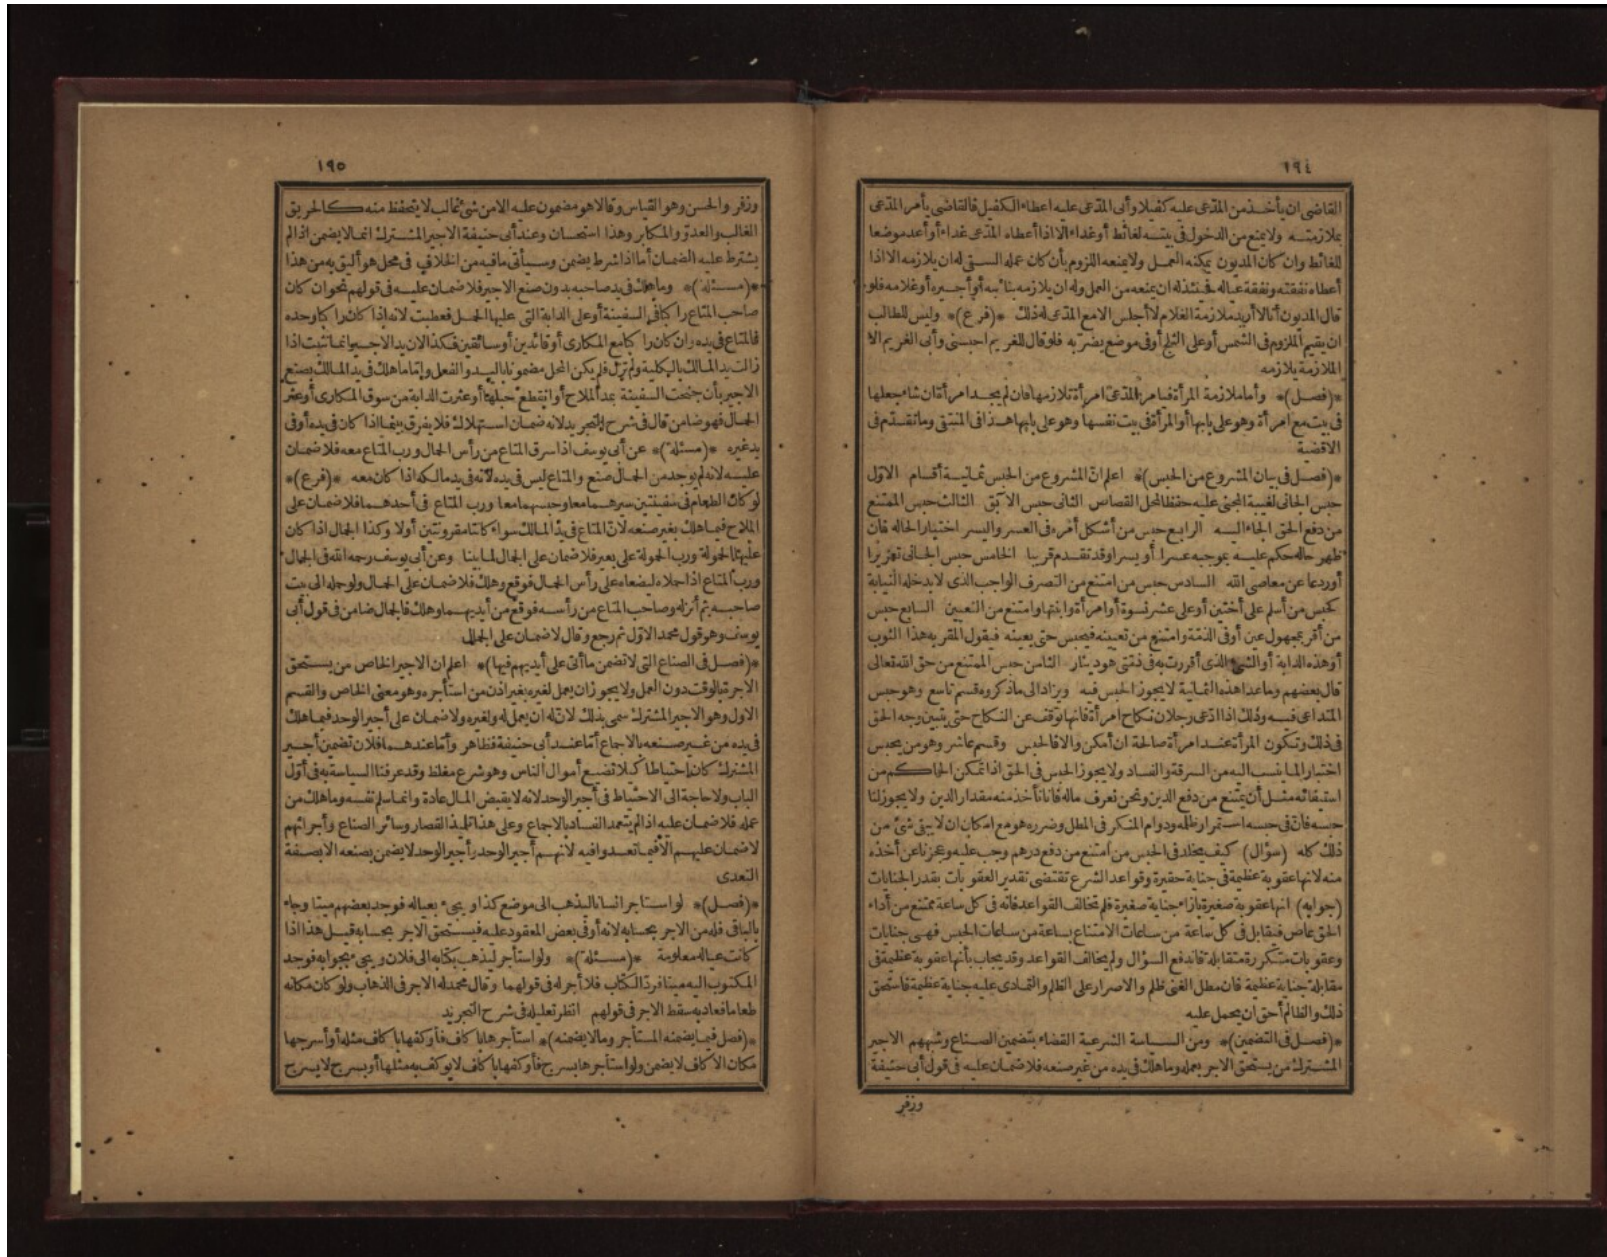 ١٩٤
القاضى ان يأخذ من المدّعى عليه كفيلا وأبى المدّعى عليه اعطاء الكفيل فالقاضى يأمر المدّعى
بملازمته ولا يمنع من الدخول فى بيته لغائط أو غداء الا اذا أعطاه المدّعى غداء أو أعد موضعا
للغائط وان كان المديون يمكنه العمل ولا يمنعه اللزوم بأن كان عمله السقى له ان يلازمه الا اذا
أعطاه نفقته ونفقة عياله فحينئذ له ان يمنعه من العمل وله ان يلازمه بنائبه أو أجيره أو غلامه فلو
قال المديون أنا لا أريد ملازمة الغلام لا أجلس الا مع المدّعى له ذلك *(فرع)* وليس للطالب
ان يقيم الملزوم فى الشمس أو على الثلج أو فى موضع يضرّ به فلو قال للغريم احبسنى وأبى الغريم الا
الملازمة يلازمه
*(فصل)* وأما ملازمة المرأة فيأمر المدّعى امرأة تلازمها فان لم يجد امرأة ان شاء جعلها
فى بيت مع امرأة وهو على بابها أو المرأة فى بيت نفسها وهو على بابها هذا فى المنتقى وما تقدّم فى
الاقضية
*(فصل فى بيان المشروع من الحبس)* اعلم انّ المشروع من الحبس ثمانية أقسام الاوّل
حبس الجانى لغيبة المجنى عليه حفظا لمحل القصاص الثانى حبس الآبق الثالث حبس الممتنع
من دفع الحق الجاء اليه الرابع حبس من أشكل أمره فى العسر واليسر اختيارا لحاله فان
ظهر حاله حكم عليه بموجبه عسرا أو يسرا وقد تقدم قريبا الخامس حبس الجانى تعزيرا
أو ردعا عن معاصى الله السادس حبس من امتنع من التصرف الواجب الذى لا يدخله النيابة
كحبس من أسلم على أختين أو على عشر نسوة أو امرأة وابنتها وامتنع من التعيين السابع حبس
من أقر بمجهول عين أو فى الذمّة وامتنع من تعيينه فيحبس حتى يعينه فيقول المقر به هذا الثوب
أو هذه الدابة أو الشئ الذى أقررت به فى ذمّتى هو دينار الثامن حبس الممتنع من حق الله تعالى
قال بعضهم وما عدا هذه الثمانية لا يجوز الحبس فيه ويزاد الى ما ذكروه قسم تاسع وهو حبس
المتداعى فيه وذلك اذا ادّعى رجلان نكاح امرأة فانها توقف عن النكاح حتى يتبين وجه الحق
فى ذلك وتكون المرأة عند امرأة صالحة ان أمكن والا فالحبس وقسم عاشر وهو من يحبس
اختبار الما ينسب اليه من السرقة والفساد ولا يجوز الحبس فى الحق اذا تمكن الحاكم من
استيفائه مثل أن يمتنع من دفع الدين ونحن نعرف ماله فانا نأخذ منه مقدار الدين ولا يجوز لنا
حبسه فانّ فى حبسه استمرار ظلمه ودوام المنكر فى المطل وضرره هو مع امكان ان لا يبقى شئ من
ذلك كله (سؤال) كيف يخلد فى الحبس من امتنع من دفع درهم وجب عليه وعجزنا عن أخذه
منه لانها عقوبة عظيمة فى جناية حقيرة وقواعد الشرع تقتضى تقدير العقوبات بقدر الجنايات
(جوابه) انها عقوبة صغيرة بازاء جناية صغيرة فلم تخالف القواعد فانه فى كل ساعة ممتنع من أداء
الحق عاص فتقابل فى كل ساعة من ساعات الامتناع بساعة من ساعات الحبس فهى جنايات
وعقوبات متكررة متقابلة فاندفع السؤال ولم يخالف القواعد وقد يجاب بأنها عقوبة عظيمة فى
مقابلة جناية عظيمة فان مطل الغنى ظلم والاصرار على الظلم والتمادى عليه جناية عظيمة فاستحق
ذلك والظالم أحق ان يحمل عليه
*(فصل فى التضمين)* ومن السياسة الشرعية القضاء بتضمين الصناع وشبههم الاجير
المشترك من يستحق الاجر بعمله وما هلك فى يده من غير صنعه فلا ضمان عليه فى قول أبى حنيفة
وزفر
١٩٥
وزفر والحسن وهو القياس وقالا هو مضمون عليه الا من شئ غالب لا يتحفظ منه كالحريق
الغالب والعدوّ والمكابر وهذا استحسان وعند أبى حنيفة الاجير المشترك انما لا يضمن اذا لم
يشترط عليه الضمان أما اذا شرط يضمن وسيأتى ما فيه من الخلاف فى محل هو أليق به من هذا
*(مسئلة)* وما هلك فى يد صاحبه بدون صنع الاجير فلا ضمان عليه فى قولهم نحو ان كان
صاحب المتاع راكبا فى السفينة أو على الدابة التى عليها الحمل فعطبت لانه إذا كان راكبا وحده
فالمتاع فى يده وان كان راكبا مع المكارى أو قائدين أو سائقين فكذا لان يد الاجير انما تثبت اذا
زالت يد المالك بالكلية ولم تزل فلم يكن المحل مضمونا باليد والفعل وإمّا ما هلك فى يد المالك بصنع
الاجير بأن جنحت السفينة بمد الملاح أو انقطع حبلها أو عثرت الدابة من سوق المكارى أو عثر
الحمال فهو ضامن قال فى شرح التجريد لانه ضمان استهلاك فلا يفرق بينما اذا كان فى يده أو فى
يد غيره *(مسئلة)* عن أبى يوسف اذا سرق المتاع من رأس الحمال ورب المتاع معه فلا ضمان
عليه لانه لم يوجد من الحمال صنع والمتاع ليس فى يده لانه فى يد مالكه اذا كان معه *(فرع)*
لو كان الطعام فى سفينتين سيرهما معا وحبسهما معا ورب المتاع فى أحدهما فلا ضمان على
الملاح فيما هلك بغير صنعه لانّ المتاع فى يدّ المالك سواء كانتا مقرونتين أولا وكذا الجمال اذا كان
عليها الحمولة ورب الحمولة على بعير فلا ضمان على الجمال لما بينا وعن أبى يوسف رحمه الله فى الحمال
ورب المتاع اذا حملاه ليضعاه على رأس الحمال فوقع وهلك فلا ضمان على الحمال ولو حمله الى بيت
صاحبه ثم أنزله وصاحب المتاع من رأسه فوقع من أيديهما وهلك فالحمال ضامن فى قول أبى
يوسف وهو قول محمد الاوّل ثم رجع وقال لا ضمان على الحمال
*(فصل فى الصناع التى لا تضمن ما أتى على أيديهم فيها)* اعلم ان الاجير الخاص من يستحق
الاجرة بالوقت دون العمل ولا يجوز ان يعمل لغيره بغير اذن من استأجره وهو معنى الخاص والقسم
الاول وهو الاجير المشترك سمى بذلك لانّ له ان يعمل له ولغيره ولا ضمان على أجير الوحد فيما هلك
فى يده من غير صنعه بالاجماع أمّا عند أبى حنيفة فظاهر وأمّا عندهما فلان تضمين أجير
المشترك كان احتياطا كيلا تضيع أموال الناس وهو شرع مغلظ وقد عرفنا السياسة به فى أوّل
الباب ولا حاجة الى الاحتياط فى أجير الوحد لانه لا يقبض المال عادة وانما سلم نفسه وما هلك من
عمله فلا ضمان عليه اذا لم يتعمد الفساد بالاجماع وعلى هذا تلميذ القصار وسائر الصناع وأجرائهم
لا ضمان عليهم الا فيما تعدوا فيه لانهم أجير الوحد وأجير الوحد لا يضمن بصنعه الا بصفة
التعدى
*(فصل)* لو استأجر انسانا ليذهب الى موضع كذا ويجىء بعياله فوجد بعضهم ميتا وجاء
بالباقى فله من الاجر بحسابه لانه أوفى بعض المعقود عليه فيستحق الاجر بحسابه قيل هذا اذا
كانت عياله معلومة *(مسئلة)* ولو استأجر ليذهب بكتابه الى فلان ويجىء بجوابه فوجد
المكتوب اليه ميتا فردّ الكتاب فلا أجر له فى قولهما وقال محمد له الاجر فى الذهاب ولو كان مكانه
طعاما فعاد به سقط الاجر فى قولهم انظر تعليله فى شرح التجريد
*(فصل فيما يضمنه المستأجر وما لا يضمنه)* استأجر ها باكاف فأوكفها باكاف مثله أو أسرجها
مكان الاكاف لا يضمن ولو استأجرها بسرج فأوكفها باكاف لا يوكف به مثلها أو بسرج لا يسرج